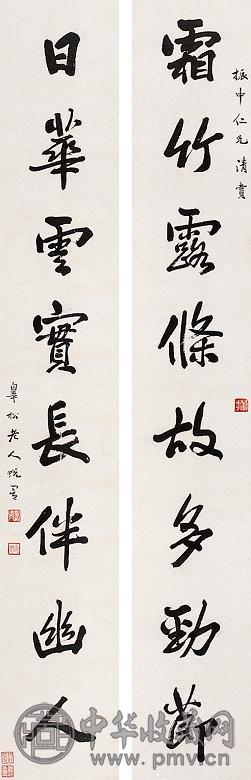 振中仁兄清賞
霜竹露條故多勁節
日華雲實長伴幽人
皋松老人
中华收藏网
www.pmvc.cn